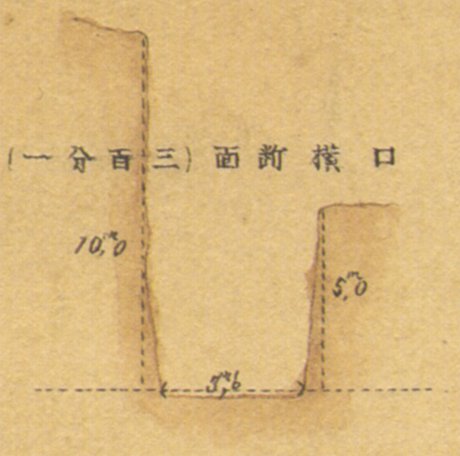 口横断面(三百分一)
10,ᵐ0
5,ᵐ0
3,ᵐ6